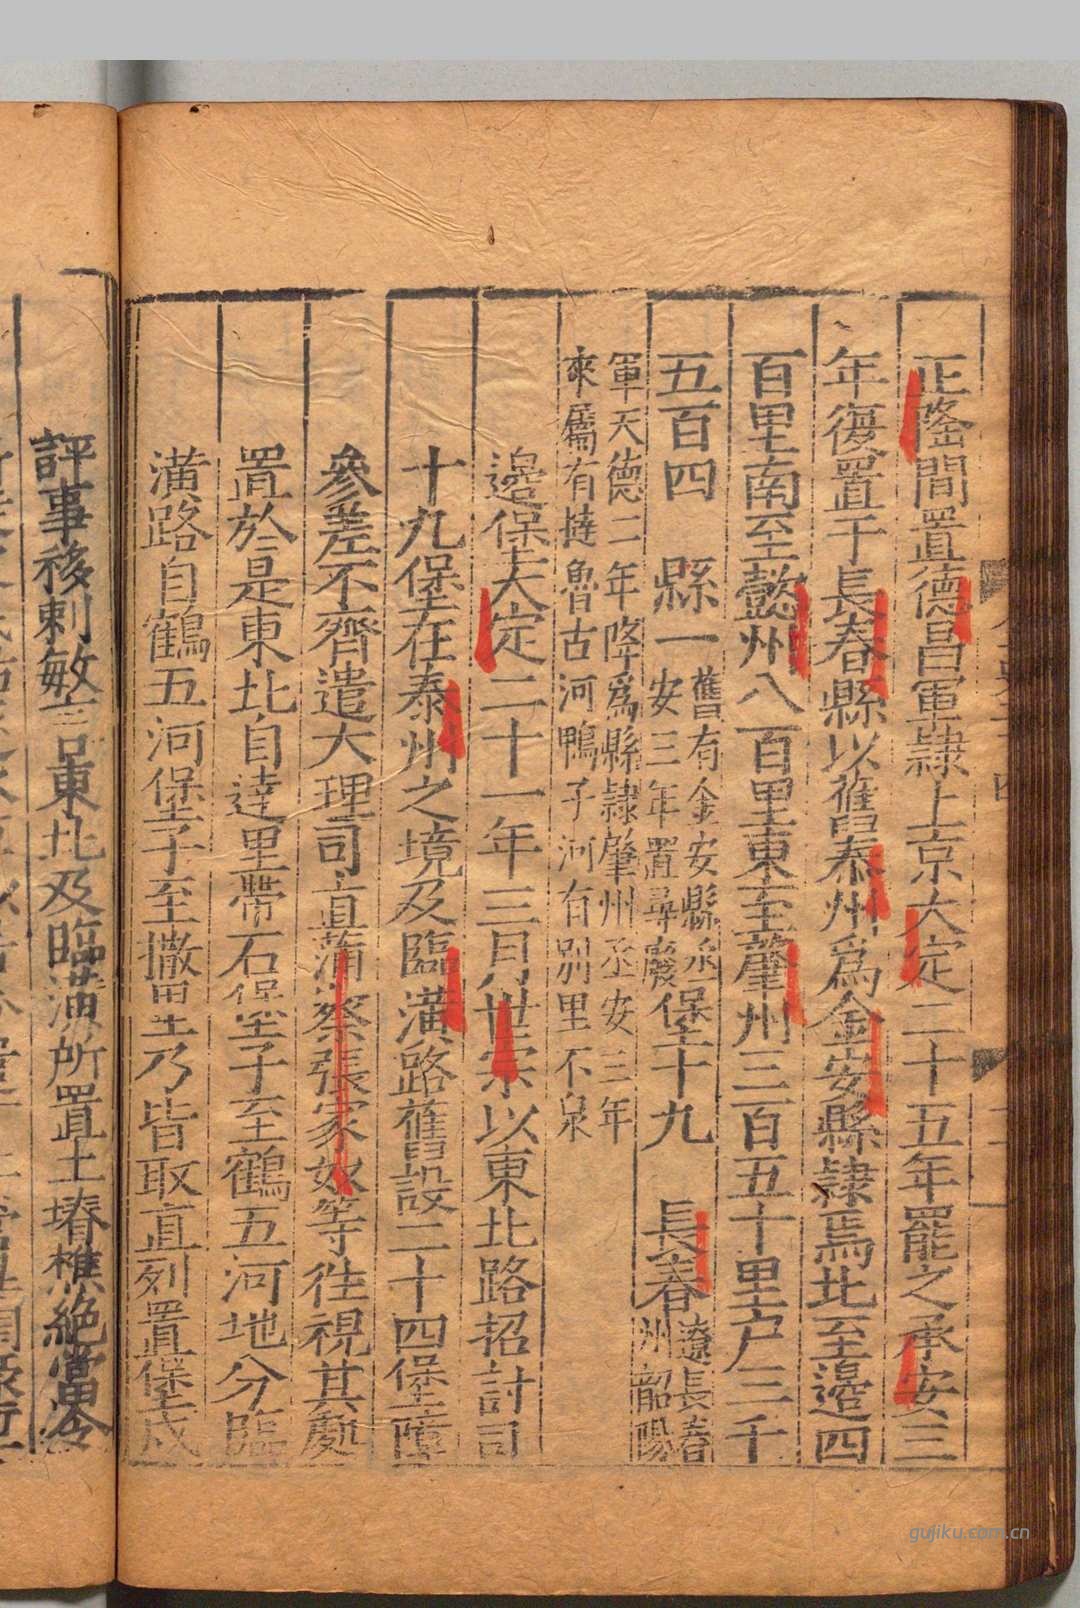 正隆間置德昌軍隷上京大定二十五年罷之承安三
年復置于長春縣以舊泰州爲金安縣隷焉北至邊四
百里南至懿州八百里東至肇州三百五十里户三千
五百四　縣一舊有金安縣承安三年置尋廢堡十九　長春遼長春州韶陽
軍天德二年降爲縣隷肇州丞安三年
來屬有撻魯古河鴨子河有别里不泉
邊堡大定二十一年三月世宗以東北路招討司
十九堡在泰州之境及臨潢路舊設二十四堡障
參差不齊遣大理司直蒲察張家奴等往視其處
置於是東北自達里帶石保堡子至鶴五河地分臨
潢路自鶴五河堡子至撒里乃皆取直列置堡戍
評事移剌敏言東北及臨潢所置土塉樵絶當令
gujiku.com.cn